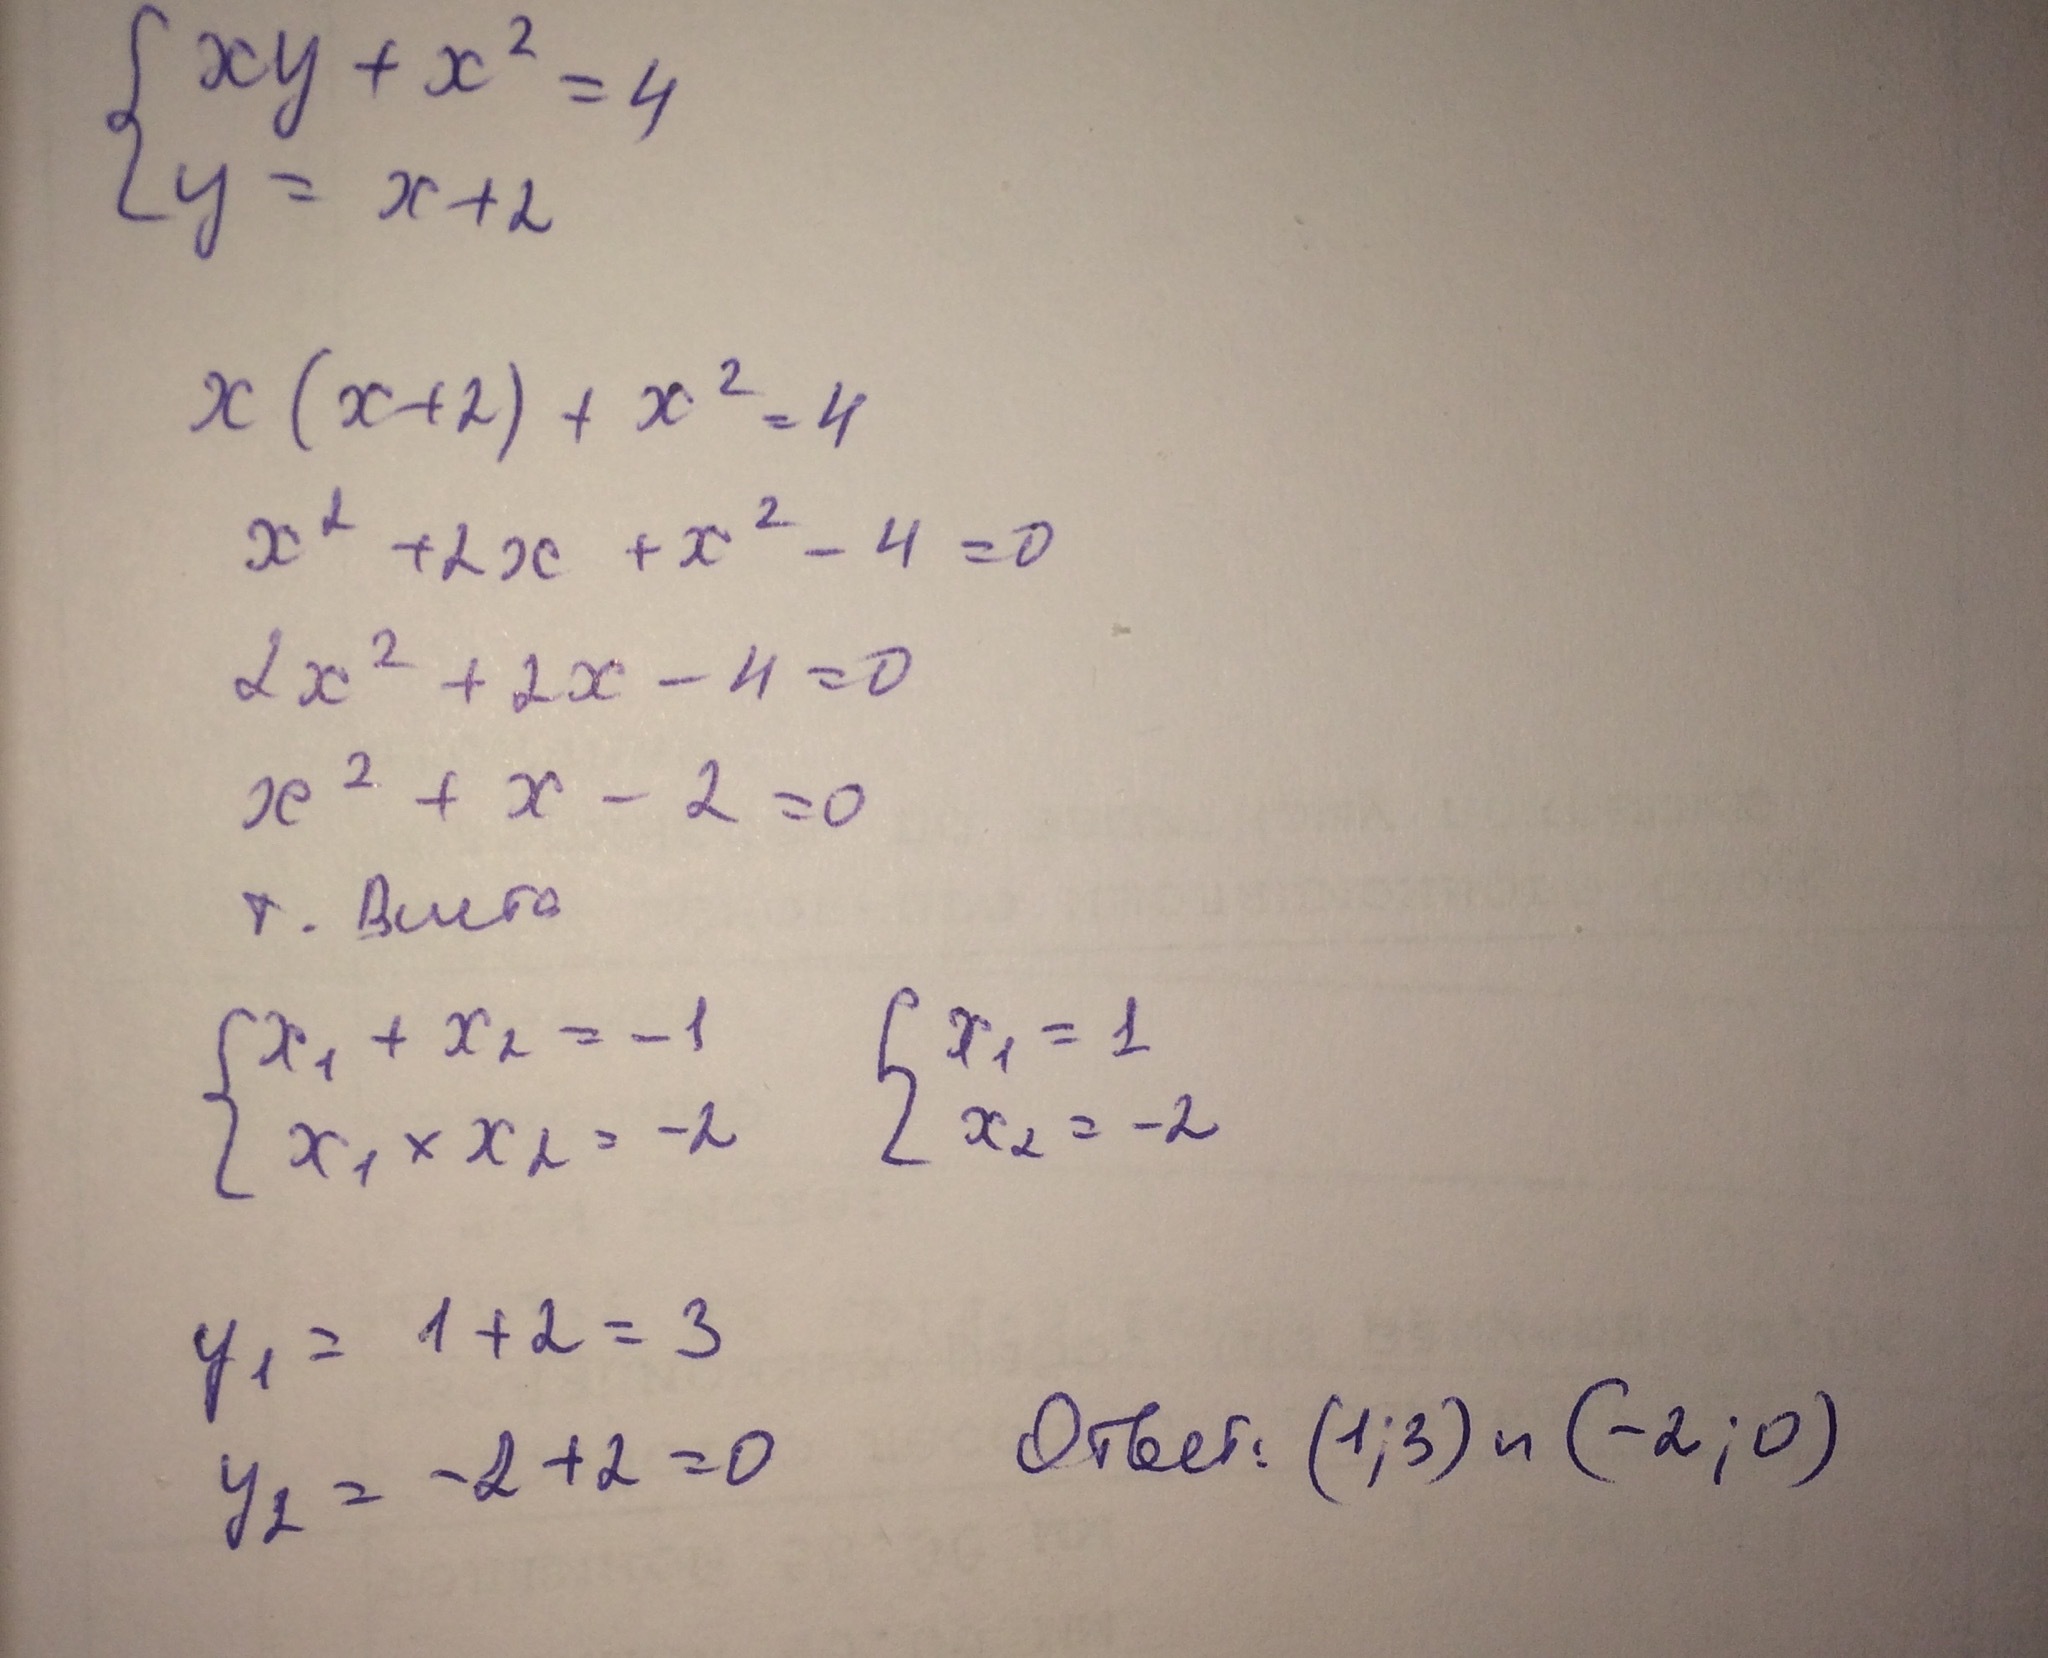 { xy + x² = 4
y = x+2
x (x+2) + x² = 4
x² +2x +x² - 4 =0
2x² + 2x - 4 =0
x² + x - 2 =0
т. Виета
{ x₁ + x₂ = -1 { x₁ = 1
x₁ × x₂ = -2 x₂ = -2
y₁ = 1+2 = 3
y₂ = -2+2 =0
Ответ: (1;3) и (-2;0)